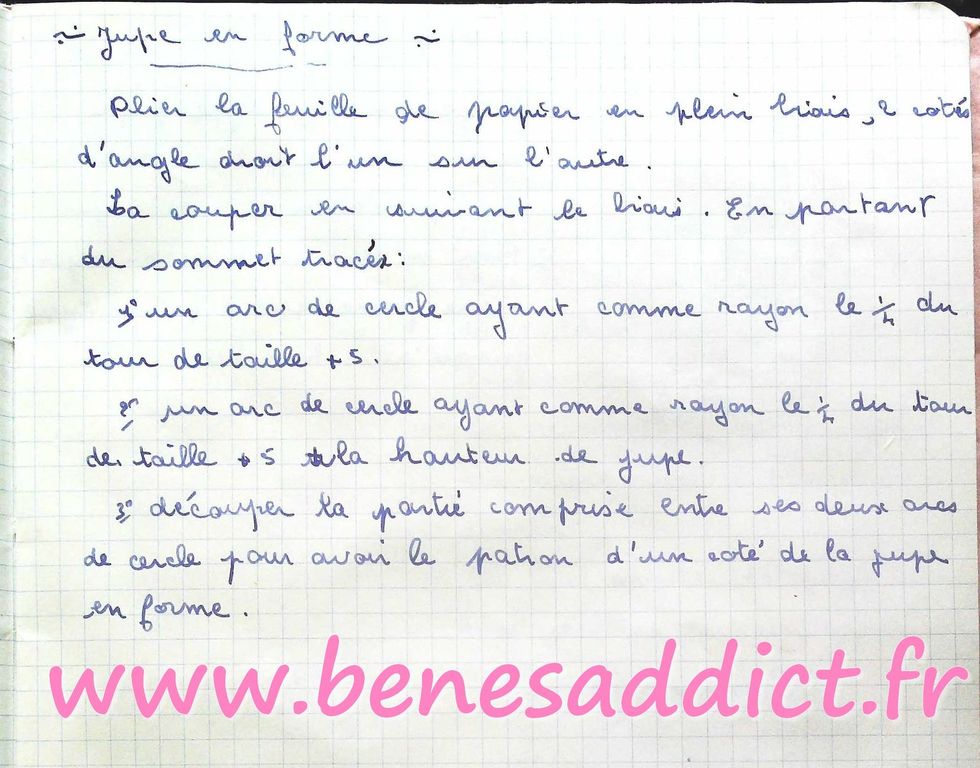 ~ Jupe en forme ~
Plier la feuille de papier en plein biais, 2 cotés
d'angle droit l'un sur l'autre.
La couper en suivant le biais. En partant
du sommet tracéz:
1° un arc de cercle ayant comme rayon le 1/2 du
tour de taille + 5.
2° un arc de cercle ayant comme rayon le 1/2 du tour
de taille + 5 + la hauteur de jupe.
3° découper la partie comprise entre ses deux arcs
de cercle pour avoir le patron d'un coté de la jupe
en forme.
www.benesaddict.fr